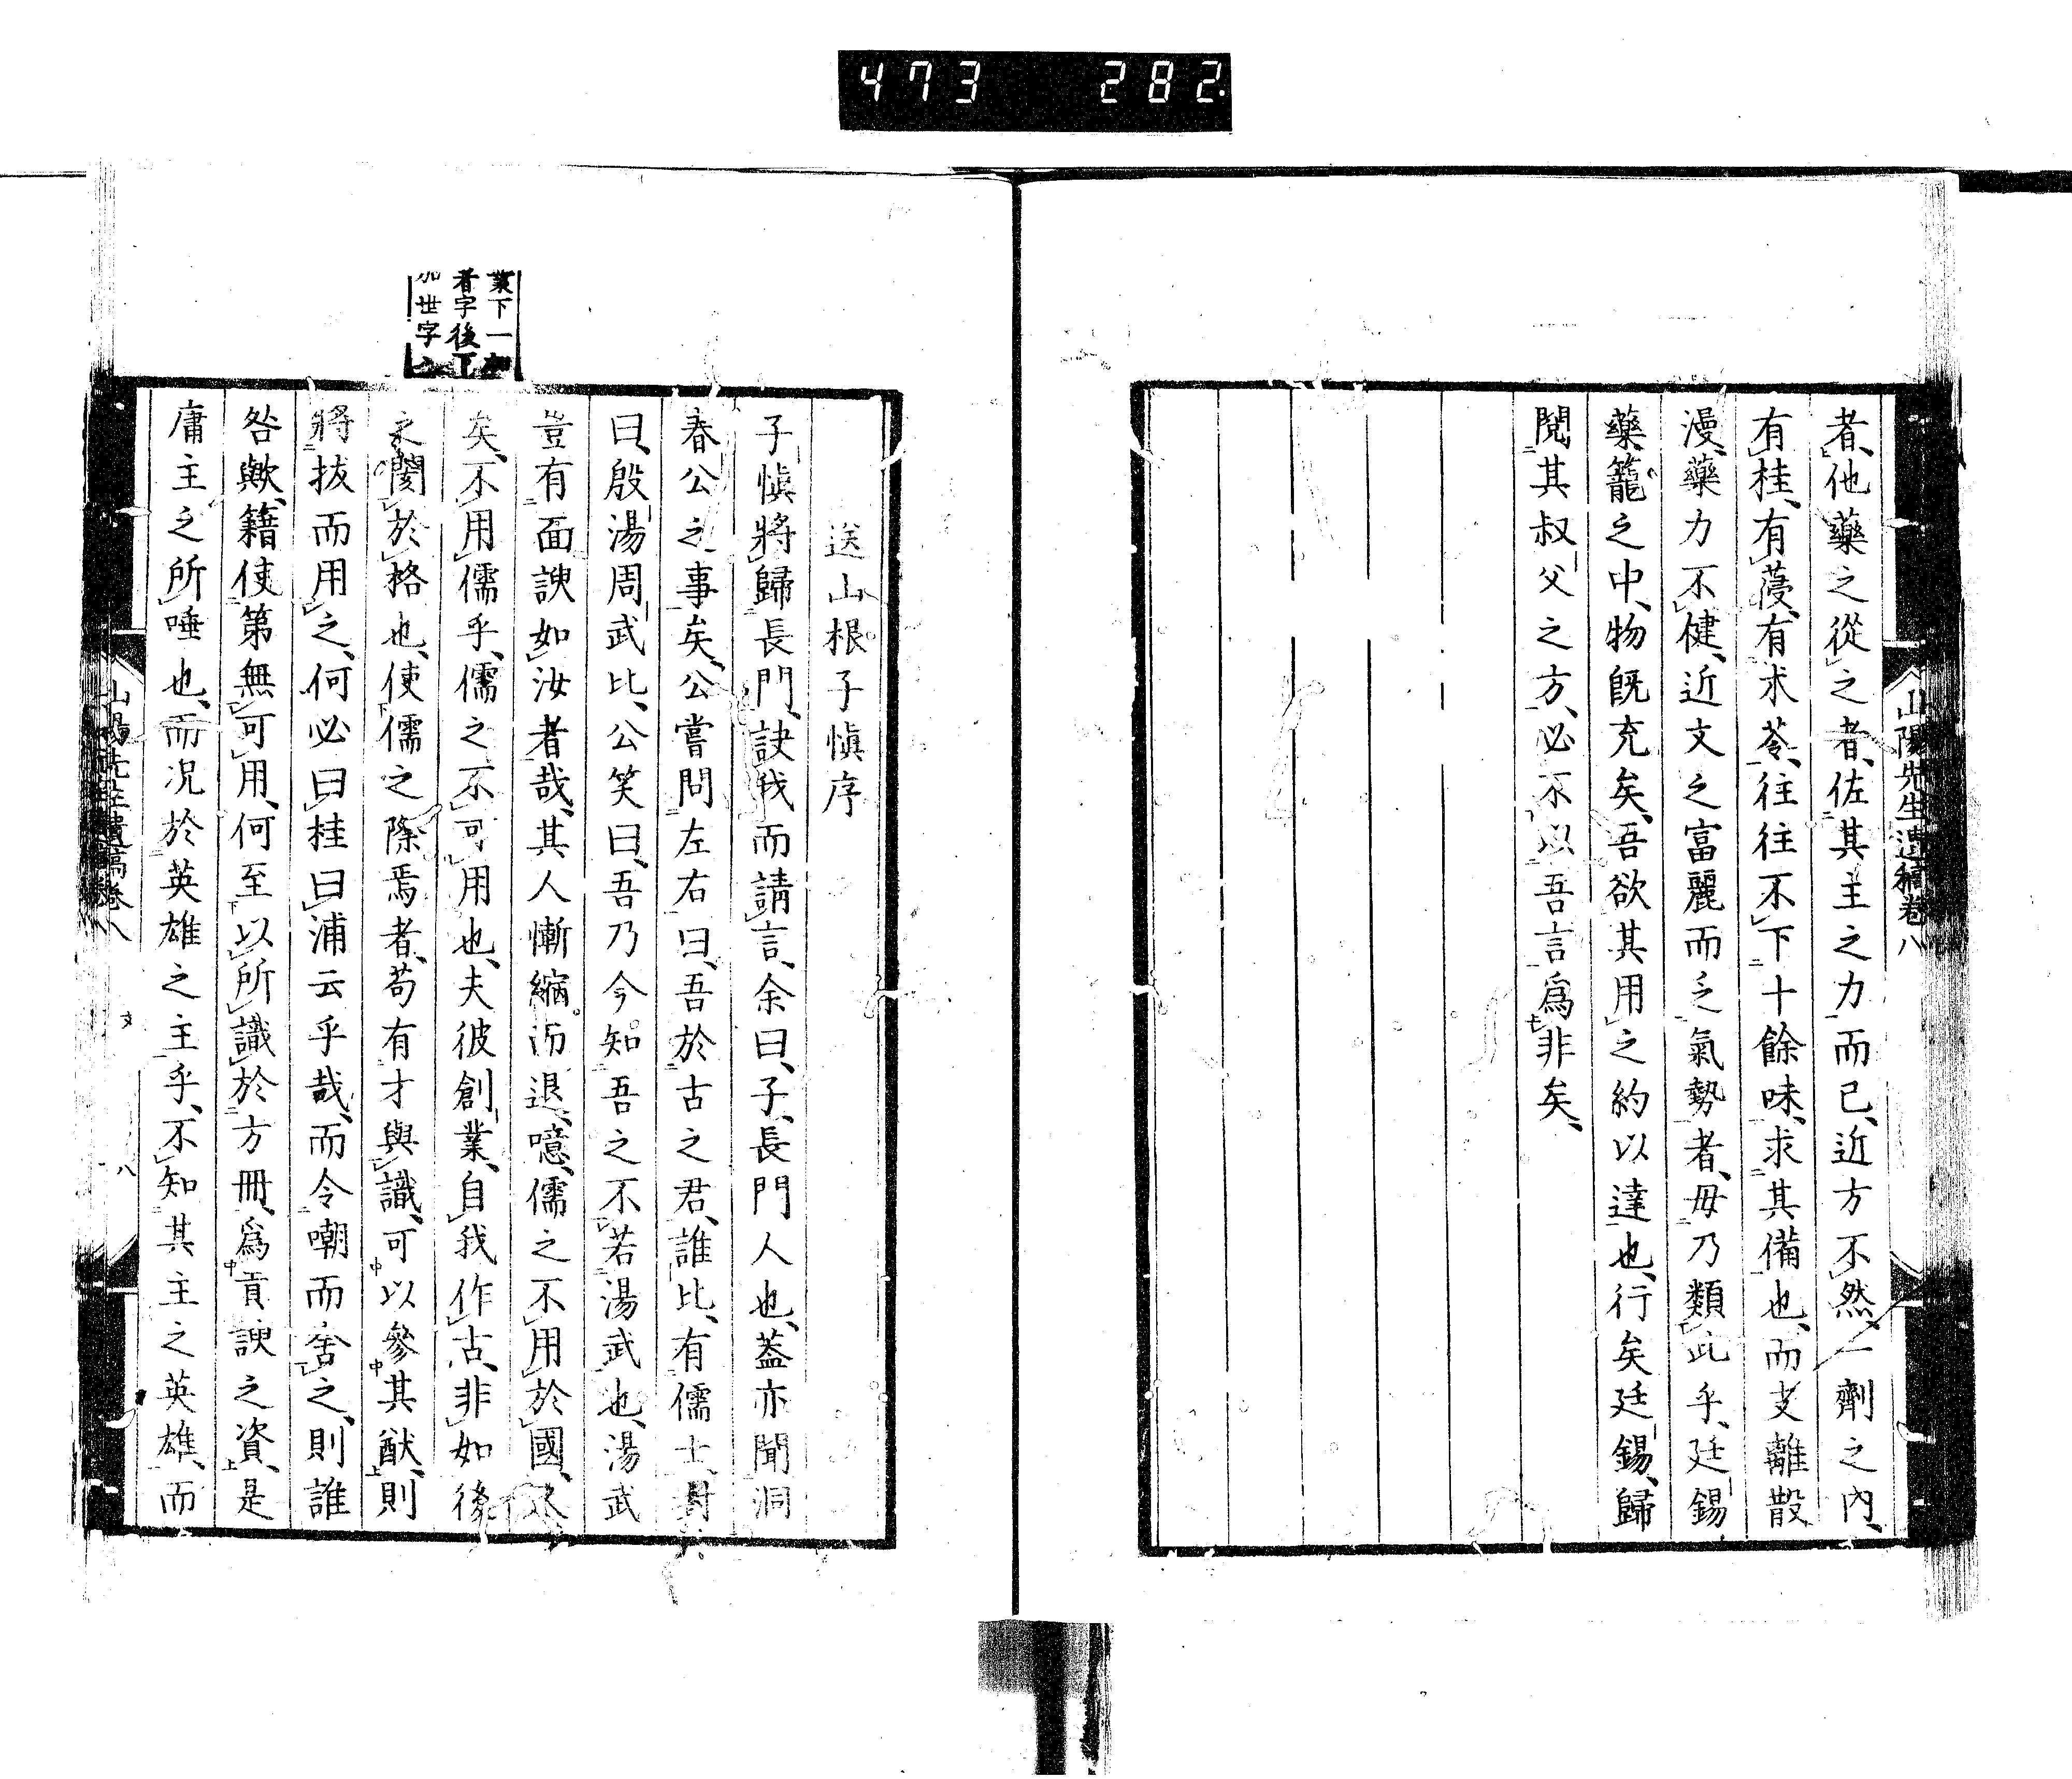 473 282
山陽先生遺稿卷八
者、他藥之從之者、佐其主之力而已、近方不然、一劑之內、
有桂、有蔓、有朮苓、往往不下十餘味、求其備也、而支離散
漫、藥力不健、近文之富麗而乏氣勢者、毋乃類此乎、廷錫
藥籠之中、物既充矣、吾欲其用之約以達也、行矣廷錫、歸
閱其叔父之方、必不以吾言爲非矣、
業下一加
者字後下
加世字
送山根子愼序
子愼將歸長門、訣我而請言、余曰、子、長門人也、蓋亦聞洞
春公之事矣、公嘗問左右曰、吾於古之君、誰比、有儒士、對
曰、殷湯周武比、公笑曰、吾乃今知吾之不若湯武也、湯武
豈有面諛如汝者哉、其人慚縮而退、噫、儒之不用於國、久
矣、不用儒乎、儒之不可用也、夫彼創業、自我作古、非如後
之閡於格也、使儒之際焉者、苟有才與識、可以參其猷、則
將拔而用之、何必曰桂曰浦云乎哉、而令嘲而舍之、則誰
咎歟、籍使第無可用、何至以所識於方冊、爲貢諛之資、是
庸主之所唾也、而况於英雄之主乎、不知其主之英雄、而
山陽先生遺稿卷八 文 八